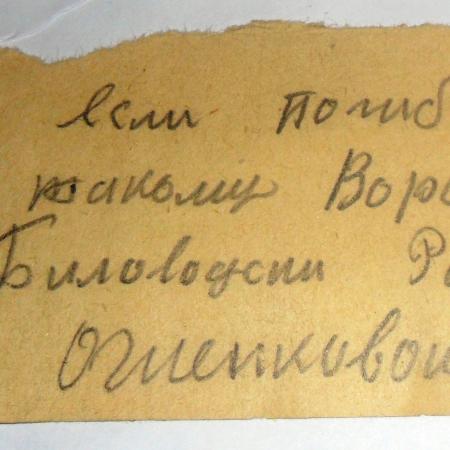 если погиб
такому Воро
Биловодски Ра
Огненковой